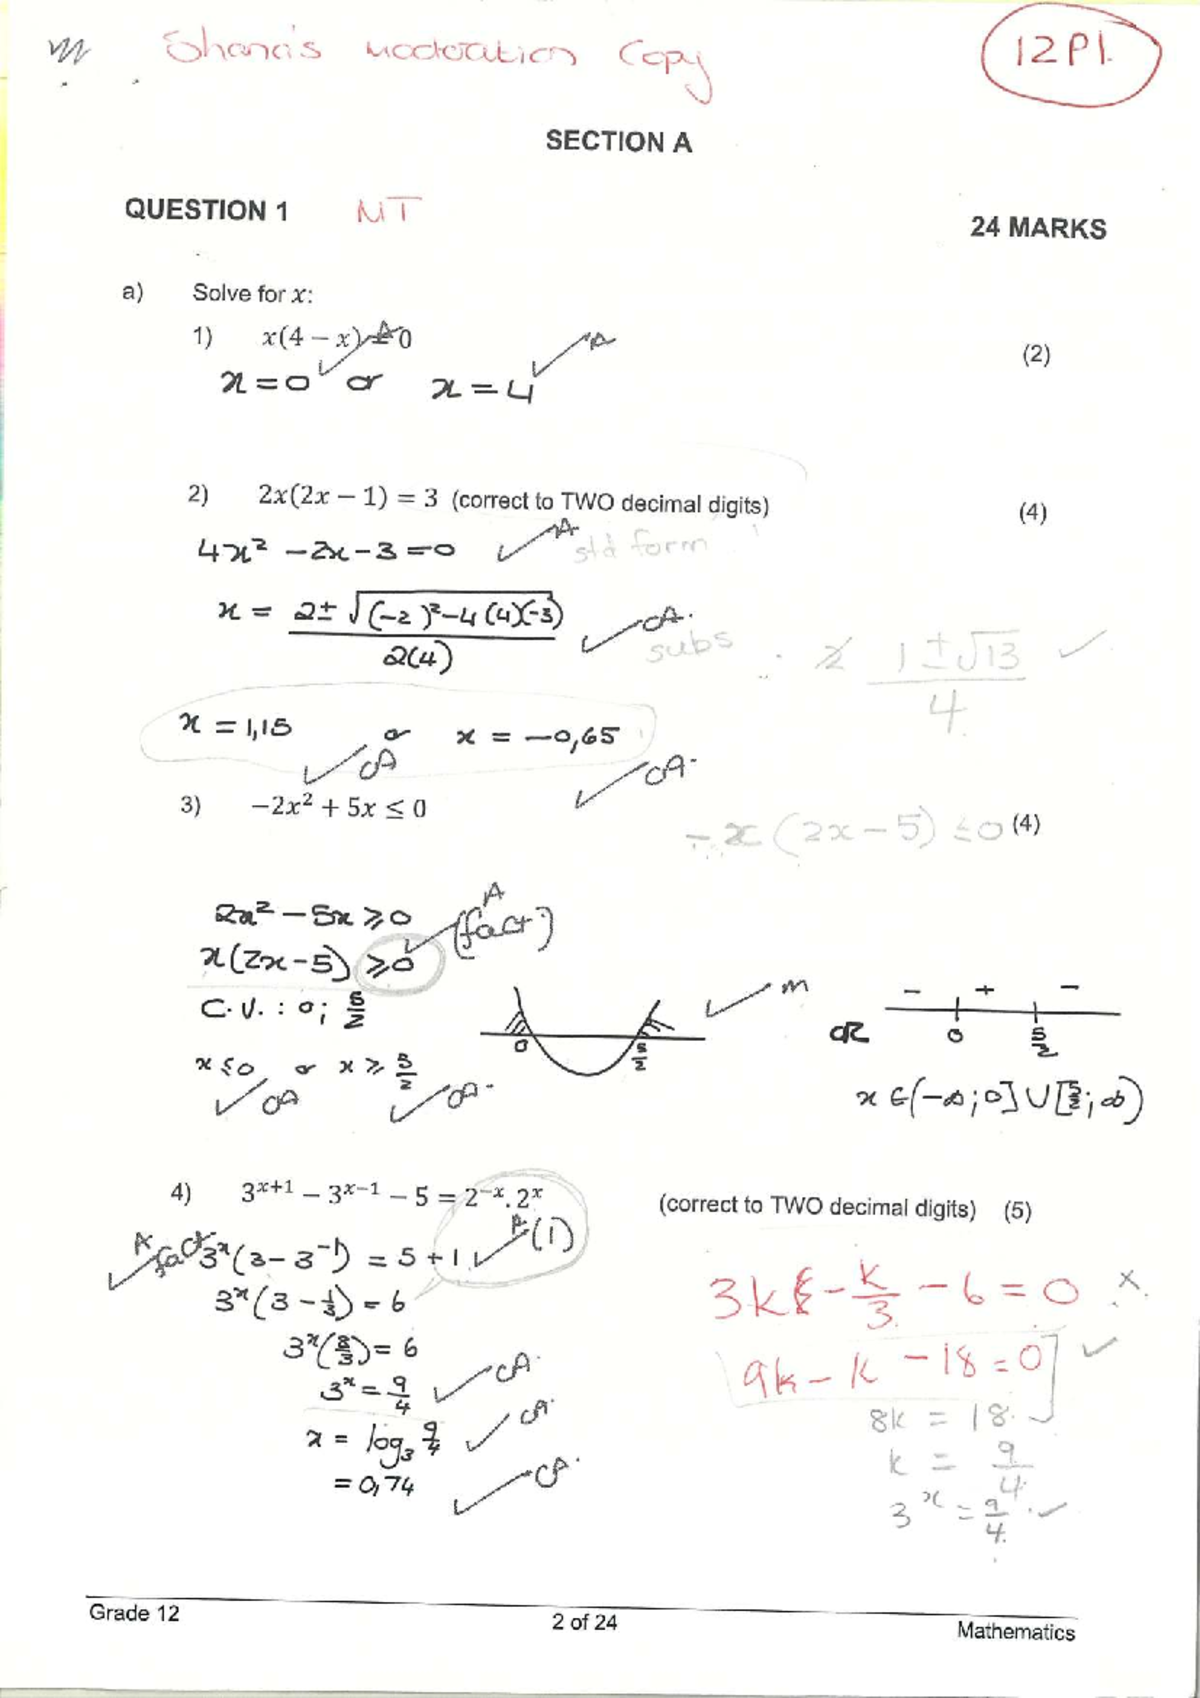 Shana's moderation Copy
12P1.
SECTION A
QUESTION 1 NT
24 MARKS
a) Solve for x:
1) x(4 – x) = 0 (2)
A
A
x = 0 or x = 4
2) 2x(2x – 1) = 3 (correct to TWO decimal digits) (4)
4x² – 2x – 3 = 0 ✓A std form
x = 2 ± √((-2)² – 4(4)(-3)) / 2(4) ✓CA. subs
1 ± √13 / 4 ✓
x = 1,15 or x = –0,65
✓CA ✓CA.
3) –2x² + 5x ≤ 0 (4)
– x (2x – 5) ≤ 0
2x² – 5x ≥ 0 A
x(2x – 5) ≥ 0 ✓ (fact)
C.V. : 0; 5/2
0 5/2 ✓ m
OR
– + –
0 5/2
x ≤ 0 or x ≥ 5/2
✓CA ✓CA.
x ∈ (–∞; 0] ∪ [5/2; ∞)
4) 3ˣ⁺¹ – 3ˣ⁻¹ – 5 = 2⁻ˣ. 2ˣ (correct to TWO decimal digits) (5)
✓A fact 3ˣ(3 – 3⁻¹) = 5 + 1 ✓A (1)
3ˣ(3 – 1/3) = 6
3ˣ(8/3) = 6
3ˣ = 9/4 ✓CA.
x = log₃ 9/4 ✓CA.
= 0,74 ✓CA.
3k – k/3 – 6 = 0 x
9k – k – 18 = 0 ✓
8k = 18
k = 9/4
3ˣ = 9/4 ✓
Grade 12
2 of 24
Mathematics